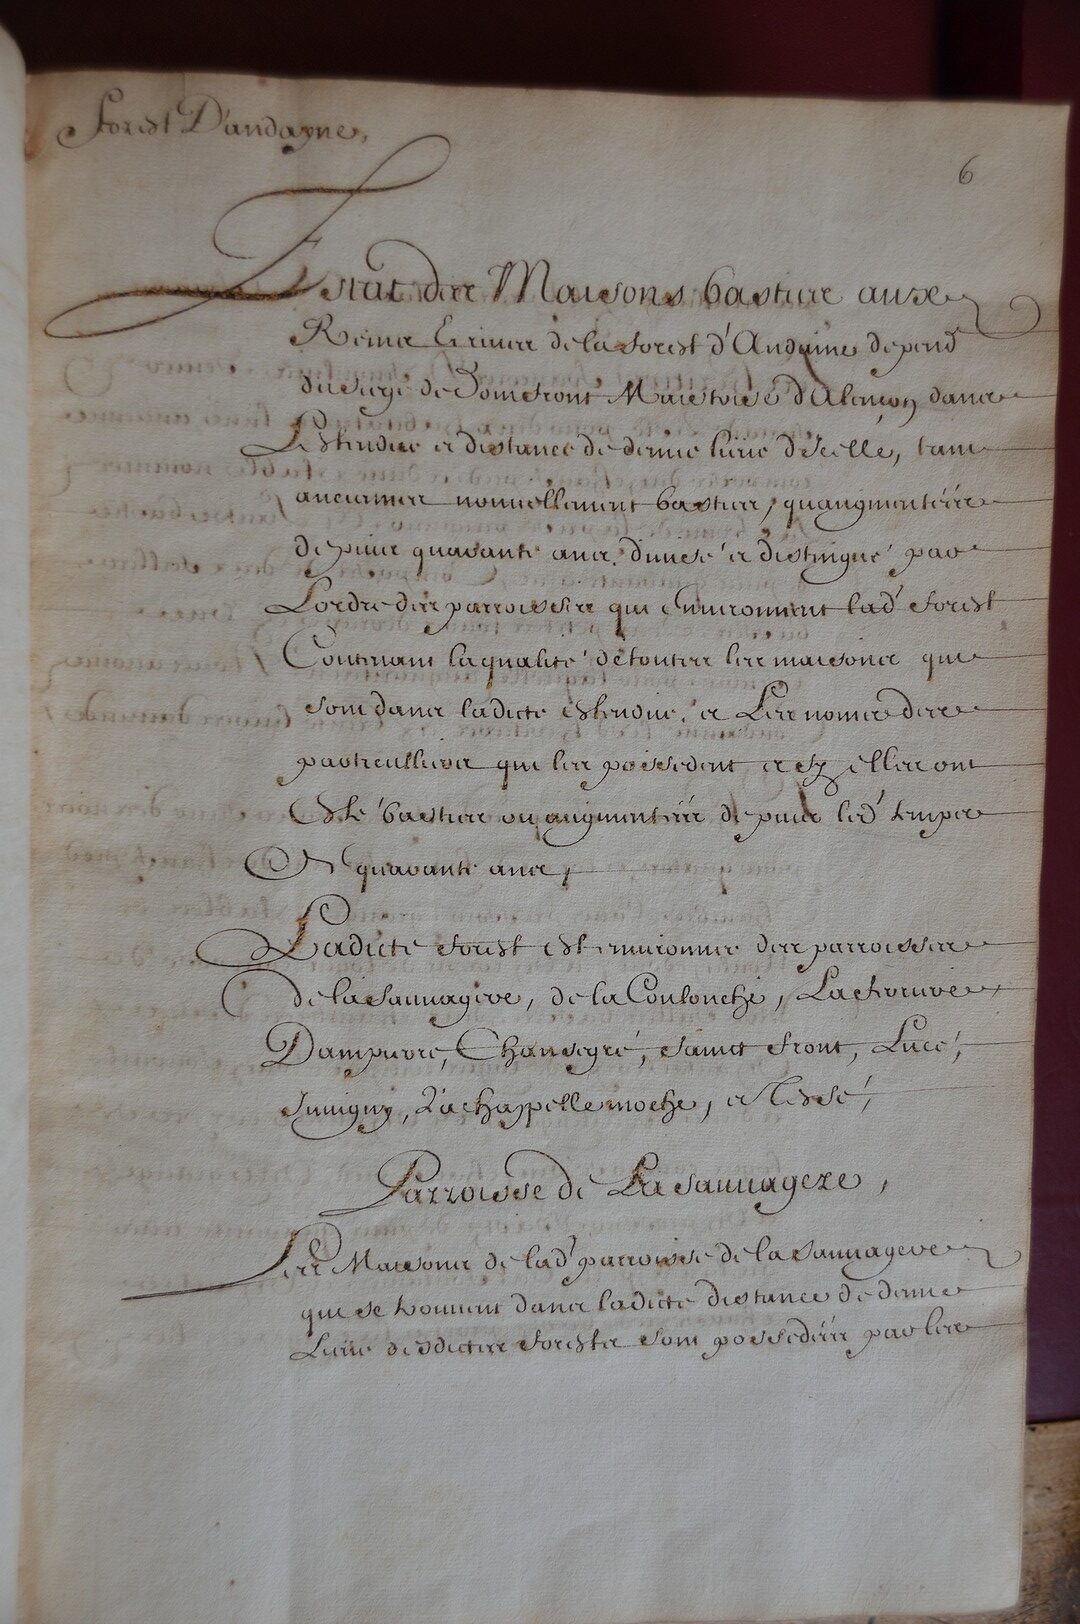 Forest D'andayne,
6
Estat des Maisons basties aux
Reins Et rives de la forest d'Andaine depend
du siege de Domfront Maistrise d'Alençon dans
L'estendue et distance de demie lieüe d'icelle, tant
anciennes nouvellement basties, qu'augmentéés
depuis quarante ans, divisé et distingué par
L'ordre des parroisses qui Environnent lad forest
Contenant la qualité de touttes les maisons qui
sont dans ladicte estendue, et Les noms des
particulliers qui les possedent et sy elles ont
Esté basties ou augmentéés depuis led temps
De quarante ans,
Ladicte forest est environnée des parroisses
de la Sauvagere, de la Coulonche, La ferriere,
Dampierre, Chansegré, Sainct front, Lucé,
Juvigny, La chappelle moche, et Tessé,
Parroisse de La Sauvagere,
Les Maisons de lad parroisse de la Sauvagere
qui se trouvent dans ladicte distance de demie
Lieüe desdictes forests sont possedéés par les